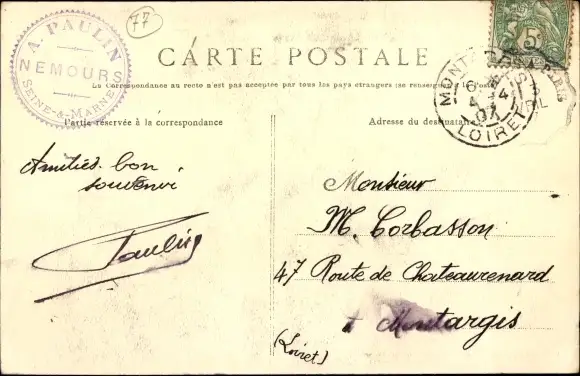 77
A. PAULIN
NEMOURS
SEINE-&-MARNE
CARTE POSTALE
La Correspondance au recto n'est pas acceptée par tous les pays étrangers (se renseigner à la Poste)
Partie réservée à la correspondance
Adresse du destinataire
5c
MONTARGIS
6
4 - 4
07
LOIRET
Amitiés bon
souvenir
Paulin
Monsieur
M. Corbasson
47 Route de Chateaurenard
à Montargis
(Loiret)